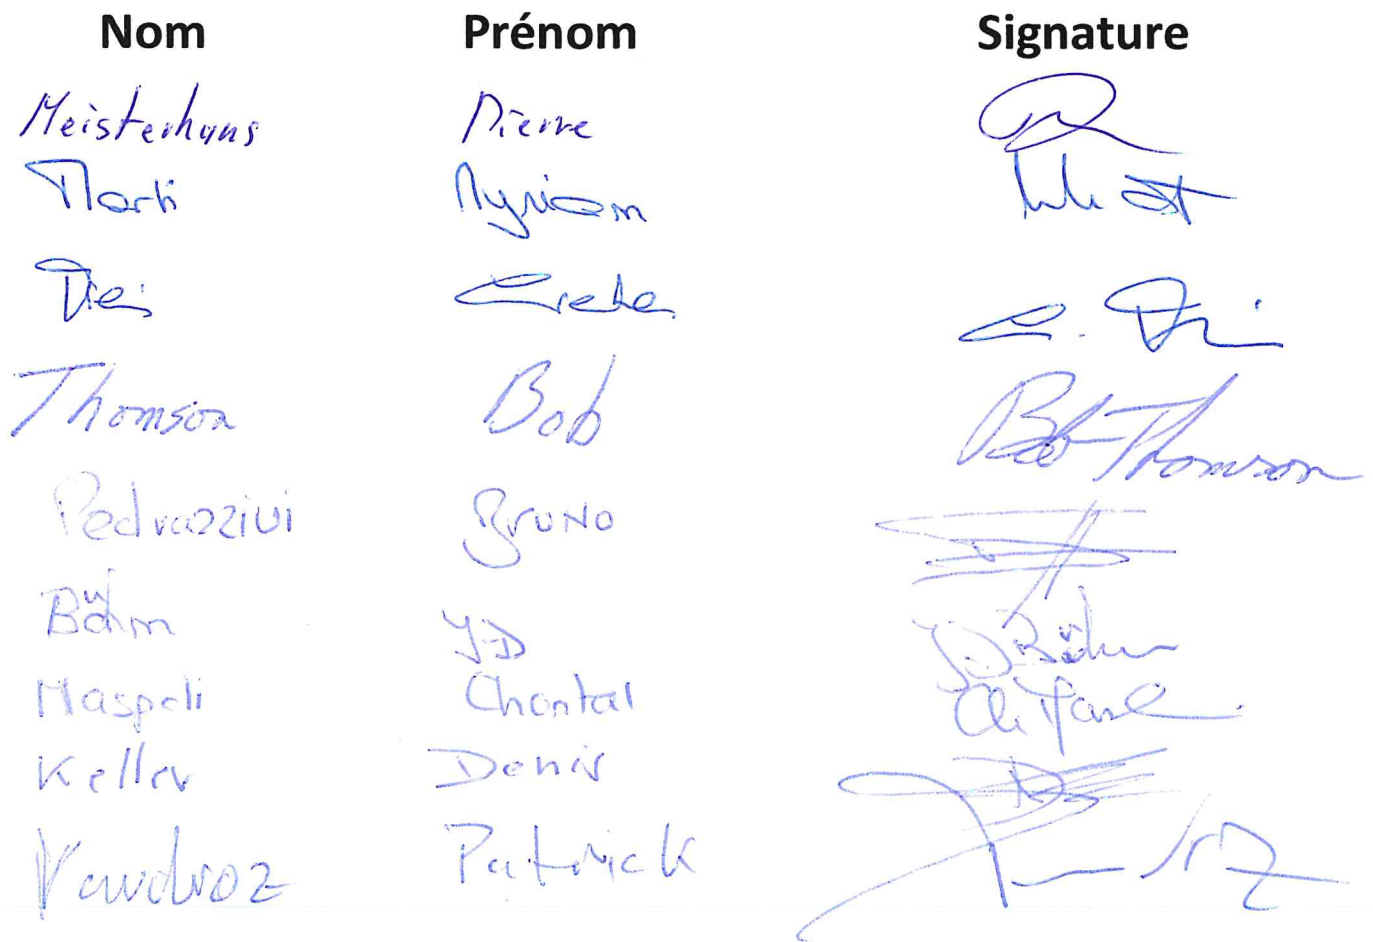 Nom Prénom Signature
Meisterhans Pierre
Marti Myriam
Grete
Thomson Bob Bob Thomson
Pedrazzini Bruno
Böhm JD JD Böhm
Maspoli Chantal
Keller Denis
Vaudroz Patrick